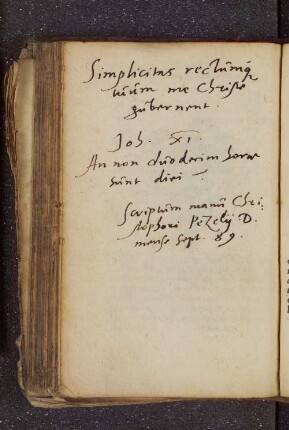 Simplicitas rectumq
tuum me Christe
gubernent.
Joh. XI.
An non duodecim horae
sunt diei ?
Scriptum manu Chri-
stophori Pezelij D.
mense Sept. 89.